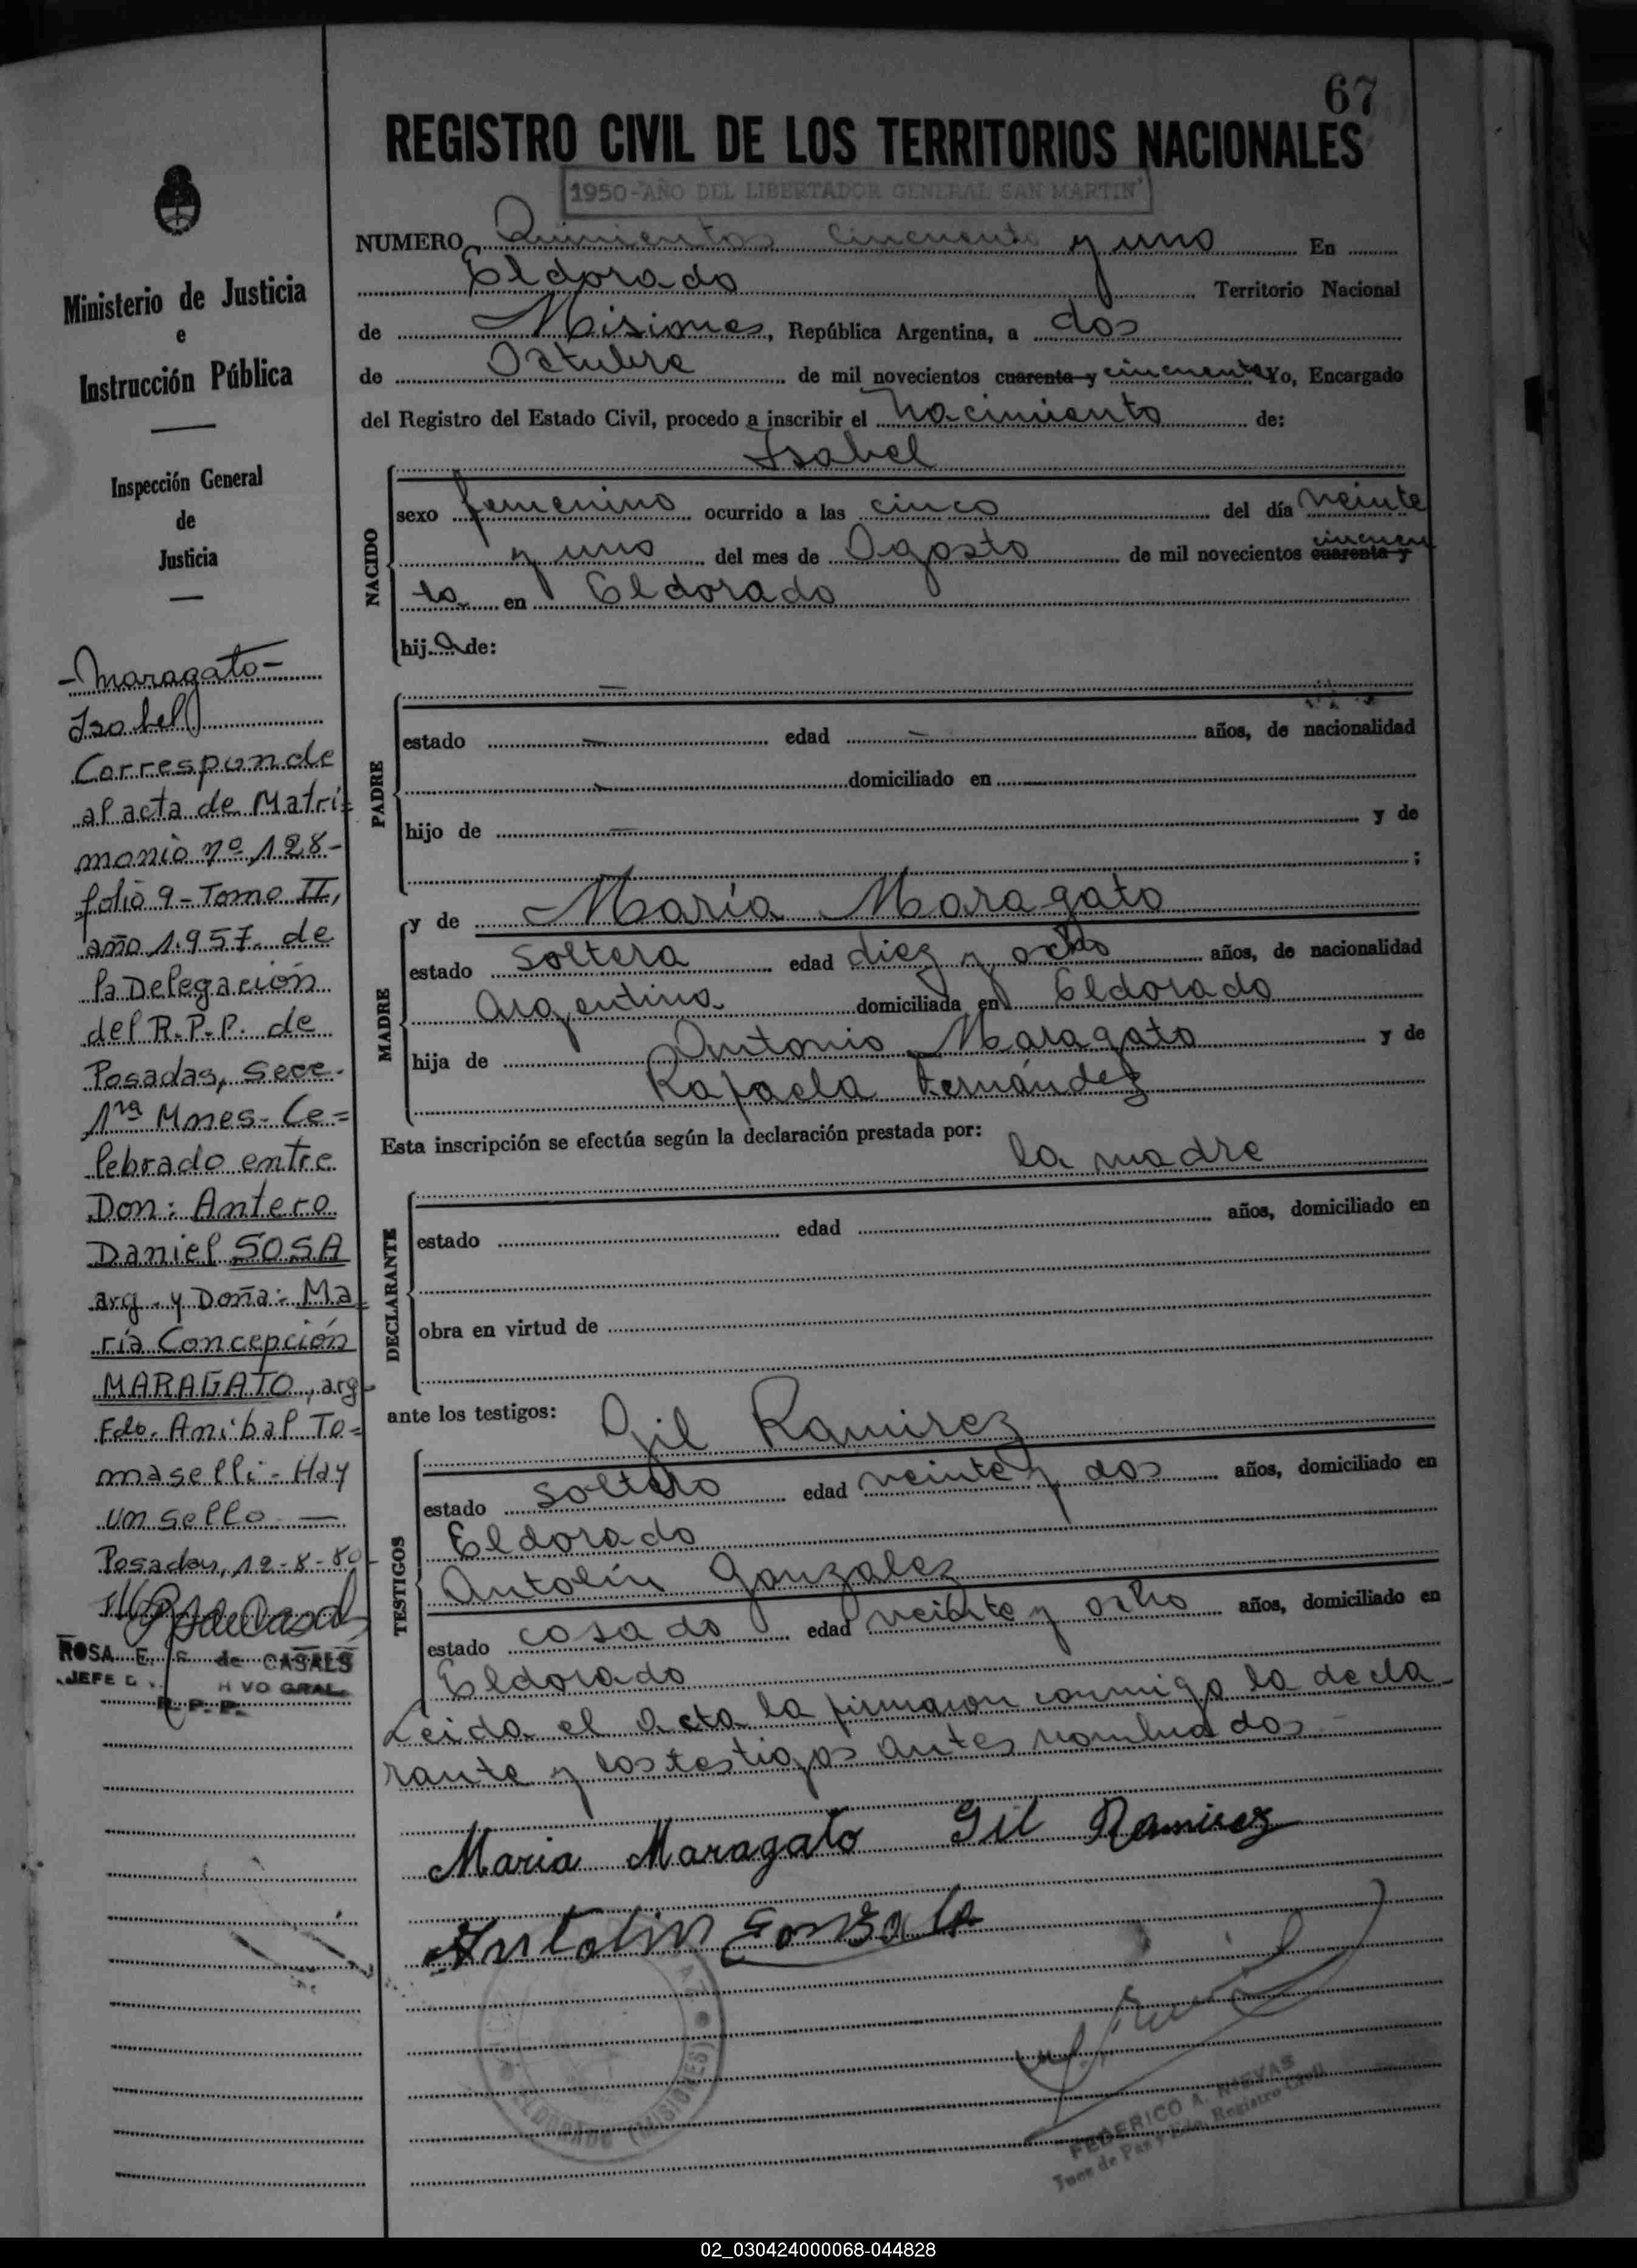 67
REGISTRO CIVIL DE LOS TERRITORIOS NACIONALES
1950-"AÑO DEL LIBERTADOR GENERAL SAN MARTIN"
NUMERO Quinientos cincuenta y uno En
Eldorado Territorio Nacional
de Misiones, República Argentina, a dos
de Octubre de mil novecientos cuarenta y cincuenta Yo, Encargado
del Registro del Estado Civil, procedo a inscribir el nacimiento de:
NACIDO
Isabel
sexo femenino ocurrido a las cinco del día veinte
y uno del mes de Agosto de mil novecientos cuarenta y cincuen
ta en Eldorado
hija de:
PADRE
estado edad años, de nacionalidad
domiciliado en
hijo de y de
;
MADRE
y de María Maragato
estado soltera edad diez y ocho años, de nacionalidad
Argentina domiciliada en Eldorado
hija de Antonio Maragato y de
Rafaela Fernández
Esta inscripción se efectúa según la declaración prestada por:
la madre
DECLARANTE
estado edad años, domiciliado en
obra en virtud de
ante los testigos:
TESTIGOS
Gil Ramirez
estado soltero edad veinte y dos años, domiciliado en
Eldorado
Antolín Gonzalez
estado casado edad veinte y ocho años, domiciliado en
Eldorado
Leida el acta la firmaron conmigo la decla-
rante y los testigos antes nombrados.-
Maria Maragato Gil Ramirez
Antolin Gonzalez
ELDORADO (MISIONES)
FEDERICO A. NIEVAS
Juez de Paz y Edo. Registro Civil
Ministerio de Justicia
e
Instrucción Pública
Inspección General
de
Justicia
-Maragato-
Isabel
Corresponde
al acta de Matri=
monio nº 128-
folio 9-Tomo II,
año 1.957. de
la Delegación
del R.P.P. de
Posadas, Secc.
1ra Mnes-Ce=
lebrado entre
Don: Antero
Daniel SOSA
arg. y Doña: Ma
ría Concepción
MARAGATO, arg-
Fdo. Anibal To=
maselli-Hay
un sello —
Posadas, 12-8-80-
ROSA E. de CASALS
JEFE VO GRAL.
R. P. P.
02_030424000068-044828